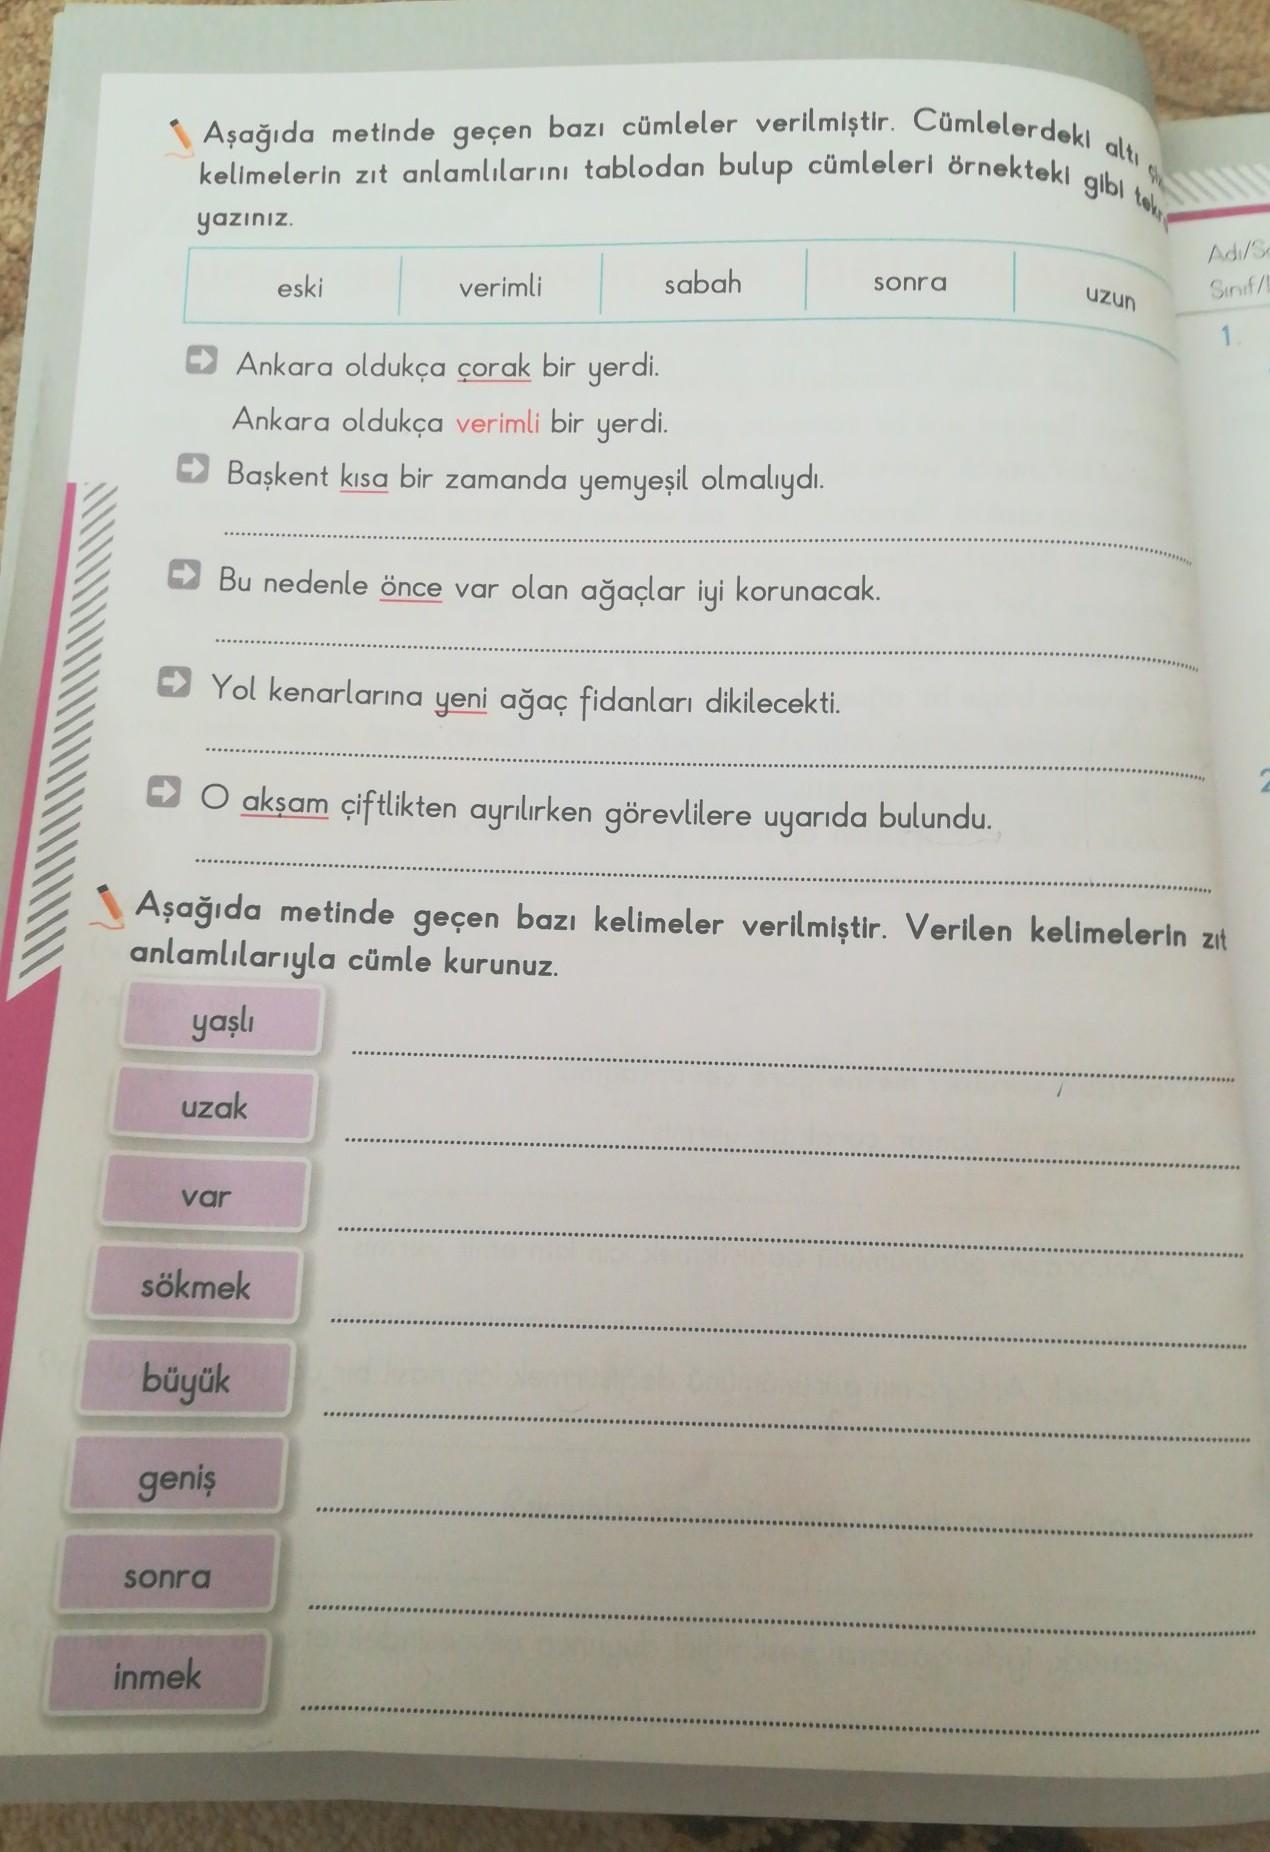 Aşağıda metinde geçen bazı cümleler verilmiştir. Cümlelerdeki altı
kelimelerin zıt anlamlılarını tablodan bulup cümleleri örnekteki gibi
yazınız.
eski verimli sabah sonra uzun
Ankara oldukça çorak bir yerdi.
Ankara oldukça verimli bir yerdi.
Başkent kısa bir zamanda yemyeşil olmalıydı.
Bu nedenle önce var olan ağaçlar iyi korunacak.
Yol kenarlarına yeni ağaç fidanları dikilecekti.
O akşam çiftlikten ayrılırken görevlilere uyarıda bulundu.
Aşağıda metinde geçen bazı kelimeler verilmiştir. Verilen kelimelerin zıt
anlamlılarıyla cümle kurunuz.
yaşlı
uzak
var
sökmek
büyük
geniş
sonra
inmek
1.